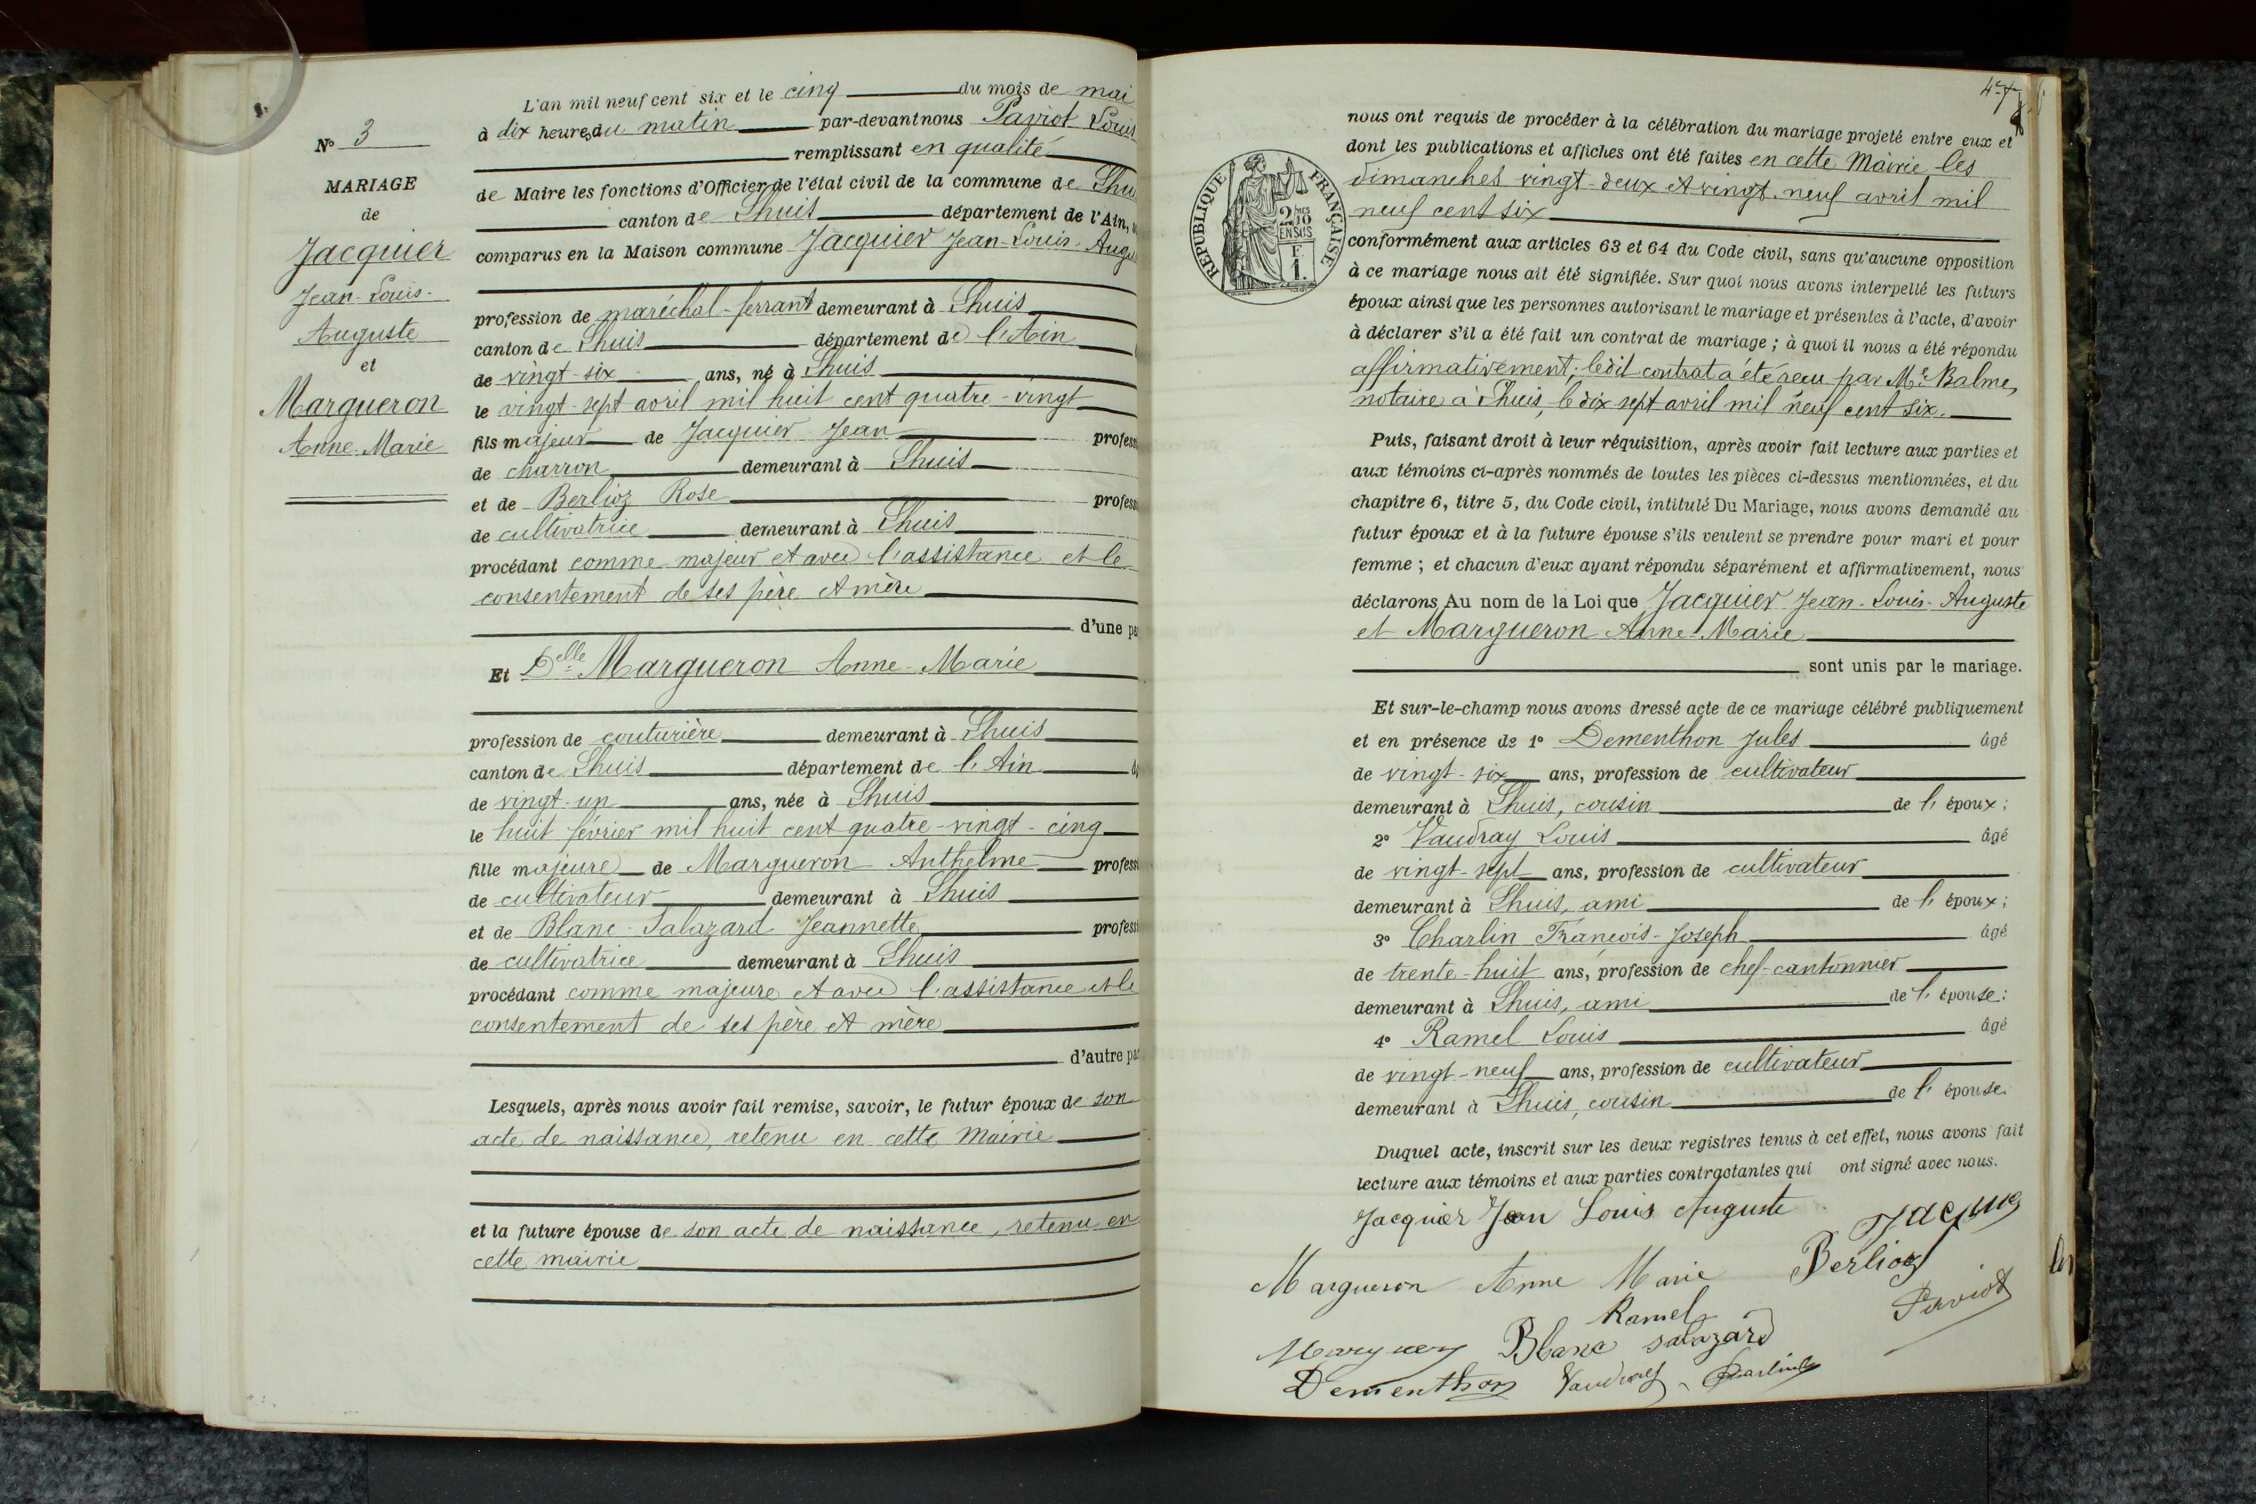 N° 3
MARIAGE
de
Jacquier
Jean-Louis-
Auguste
et
Margueron
Anne-Marie
L'an mil neuf cent six et le cinq du mois de mai
à dix heures du matin par-devant nous Paviot Louis
remplissant en qualité
de Maire les fonctions d'Officier de l'état civil de la commune de Lhu
canton de Lhuis département de l'Ain,
comparus en la Maison commune Jacquier Jean-Louis-Augu
profession de maréchal-ferrant demeurant à Lhuis
canton de Lhuis département de l'Ain
de vingt-six ans, né à Lhuis
le vingt-sept avril mil huit cent quatre-vingt
fils majeur de Jacquier Jean profess
de charron demeurant à Lhuis
et de Berlioz Rose profess
de cultivatrice demeurant à Lhuis
procédant comme majeur et avec l'assistance et le
consentement de ses père et mère
d'une pa
Et Delle Margueron Anne-Marie
profession de couturière demeurant à Lhuis
canton de Lhuis département de l'Ain
de vingt-un ans, née à Lhuis
le huit février mil huit cent quatre-vingt-cinq
fille majeure de Margueron Anthelme professi
de cultivateur demeurant à Lhuis
et de Blanc-Salazard Jeannette professi
de cultivatrice demeurant à Lhuis
procédant comme majeure et avec l'assistance et le
consentement de ses père et mère
d'autre pa
Lesquels, après nous avoir fait remise, savoir, le futur époux de son
acte de naissance, retenu en cette mairie
et la future épouse de son acte de naissance, retenu en
cette mairie
47
RÉPUBLIQUE FRANÇAISE
2/10
EN SUS
F
1.
nous ont requis de procéder à la célébration du mariage projeté entre eux et
dont les publications et affiches ont été faites en cette Mairie les
dimanches vingt-deux et vingt-neuf avril mil
neuf cent six
conformément aux articles 63 et 64 du Code civil, sans qu'aucune opposition
à ce mariage nous ait été signifiée. Sur quoi nous avons interpellé les futurs
époux ainsi que les personnes autorisant le mariage et présentes à l'acte, d'avoir
à déclarer s'il a été fait un contrat de mariage ; à quoi il nous a été répondu
affirmativement; ledit contrat a été reçu par Me Balme,
notaire à Lhuis, le dix sept avril mil neuf cent six.
Puis, faisant droit à leur réquisition, après avoir fait lecture aux parties et
aux témoins ci-après nommés de toutes les pièces ci-dessus mentionnées, et du
chapitre 6, titre 5, du Code civil, intitulé Du Mariage, nous avons demandé au
futur époux et à la future épouse s'ils veulent se prendre pour mari et pour
femme ; et chacun d'eux ayant répondu séparément et affirmativement, nous
déclarons Au nom de la Loi que Jacquier Jean-Louis-Auguste
et Margueron Anne-Marie
sont unis par le mariage.
Et sur-le-champ nous avons dressé acte de ce mariage célébré publiquement
et en présence de 1° Dementhon Jules âgé
de vingt-six ans, profession de cultivateur
demeurant à Lhuis, cousin de l'époux ;
2° Vaudray Louis âgé
de vingt-sept ans, profession de cultivateur
demeurant à Lhuis, ami de l'époux ;
3° Charlin François-Joseph âgé
de trente-huit ans, profession de chef-cantonnier
demeurant à Lhuis, ami de l'épouse :
4° Ramel Louis âgé
de vingt-neuf ans, profession de cultivateur
demeurant à Lhuis, cousin de l'épouse.
Duquel acte, inscrit sur les deux registres tenus à cet effet, nous avons fait
lecture aux témoins et aux parties contractantes qui ont signé avec nous.
Jacquier Jean Louis Auguste
Margueron Anne Marie Berlioz
Ramel Paviot
Blanc Salazard
Dementhon Vaudray Charlin